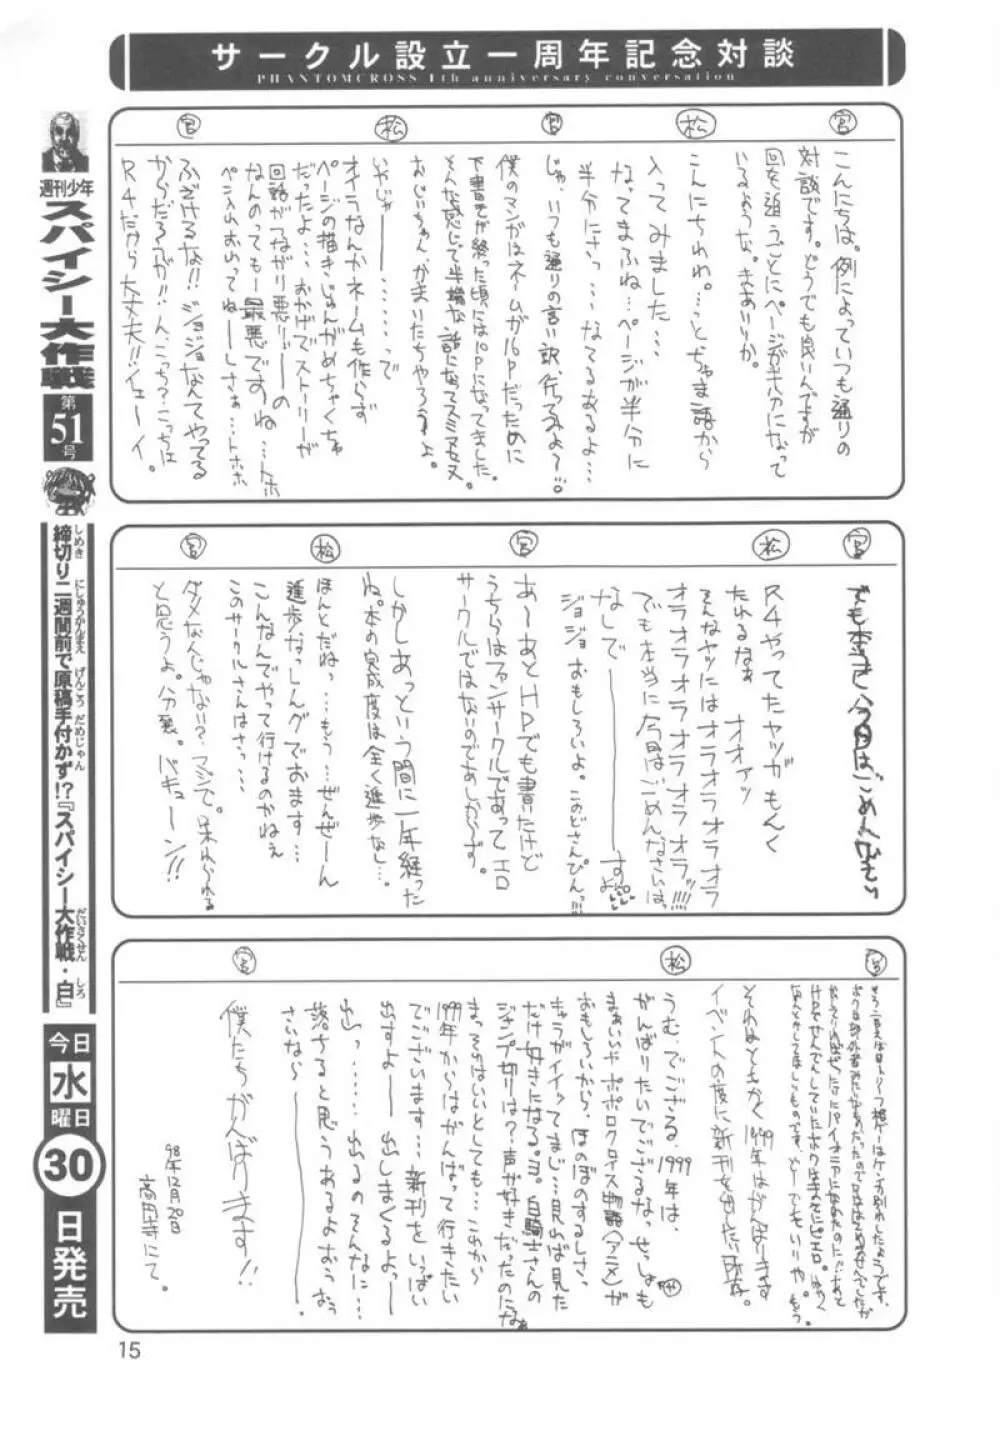 サークル設立一周年記念対談
PHANTOMCROSS 1th anniversary conversation
宮
こんにちは。例によっていつも通りの
対談です。どうでも良いんですが
回を追うごとにページが半分になって
いるような。きのせいか。
松
こんにちわわ。…っとちゃま語から
入ってみました…
なってまふね…ページが半分に
半分にさっ…なてるあるよ…
宮
じゃ、いつも通りの言い訳、行ってみよ〜。
僕のマンガはネームが16Pだったために
下書きが終った頃には10Pになってました。
そんな感じで半端な話になってスミマセヌ
おじいちゃん、かまいたちやろうよ。
松
いやじゃ――――で
オイラなんかネームも作らず
ページの描きじゅんがめちゃくちゃ
だったよ…おかげでストーリーが
回話がつながり悪リ―の
なんのっても―最悪ですね…トホホ
ペン入れおいてねーしさぁ…トホホ
宮
ふざけるな!!ジョジョなんてやってる
からだろうが!!ん、こっち?こっちは
R4だから大丈夫!!イェーイ。
宮
でも本当に今回はごめんなさい
松
R4やってたヤツがもんく
たれるなぁ オオァッ
そんなヤツにはオラオラオラオラ
オラオラオラオラオラオラオラッ!!!!
でも本当に今回はごめんなさいは
なしで――――すよ
ジョジョおもしろいよ。このどさんぴんっ!!!
宮
あ〜あとHPでも書いたけど
うちらはファンサークルであってエロ
サークルではないのであしからず。
しかしあっという間に一年経った
ね。本の完成度は全く進歩なし…
松
ほんとだねっ…もう…ぜんぜーん
進歩なっしんグでおます…
こんなんでやって行けるのかねぇ
このサークルさんはさっ…
宮
ダメなんじゃない?マジで。呆れられる
と思うよ。分裂。バキューン!!
宮
それはともかく1999年はがんばります
イベントの度に新刊を出したい所存。
松
うむ、でござる、1999年は、
がんばりたいでござるなっせっしゃも
まぁいいやポポロクロイス物語(アニメ)が
おもしろいから、ほのぼのするしさ、
キャラがイイッてまじ…見山ば見た
だけ好きになる。ヨ。白騎士さんの
ジャンプ切りは?声が好きだったのになぁ
まっそりはいいとしても…これから
1999年からはがんばって行きたい
でございます…新刊をいっぱい
出すよ―― 出しまくるよっ――
出っ……出るのそんなに…
落ちると思うあるよおぅぉぅ
さいなら〜――――。
宮
僕たちがんばります!!
98年12月20日
高円寺にて。
週刊少年
スパイシー大作戦
第
51
号
締切り二週間前で原稿手付かず!?『スパイシー大作戦・白』
しめき にしゅうかんまえ げんこう だめじゃん だいさくせん しろ
今日
水
曜日
30
日発売
15